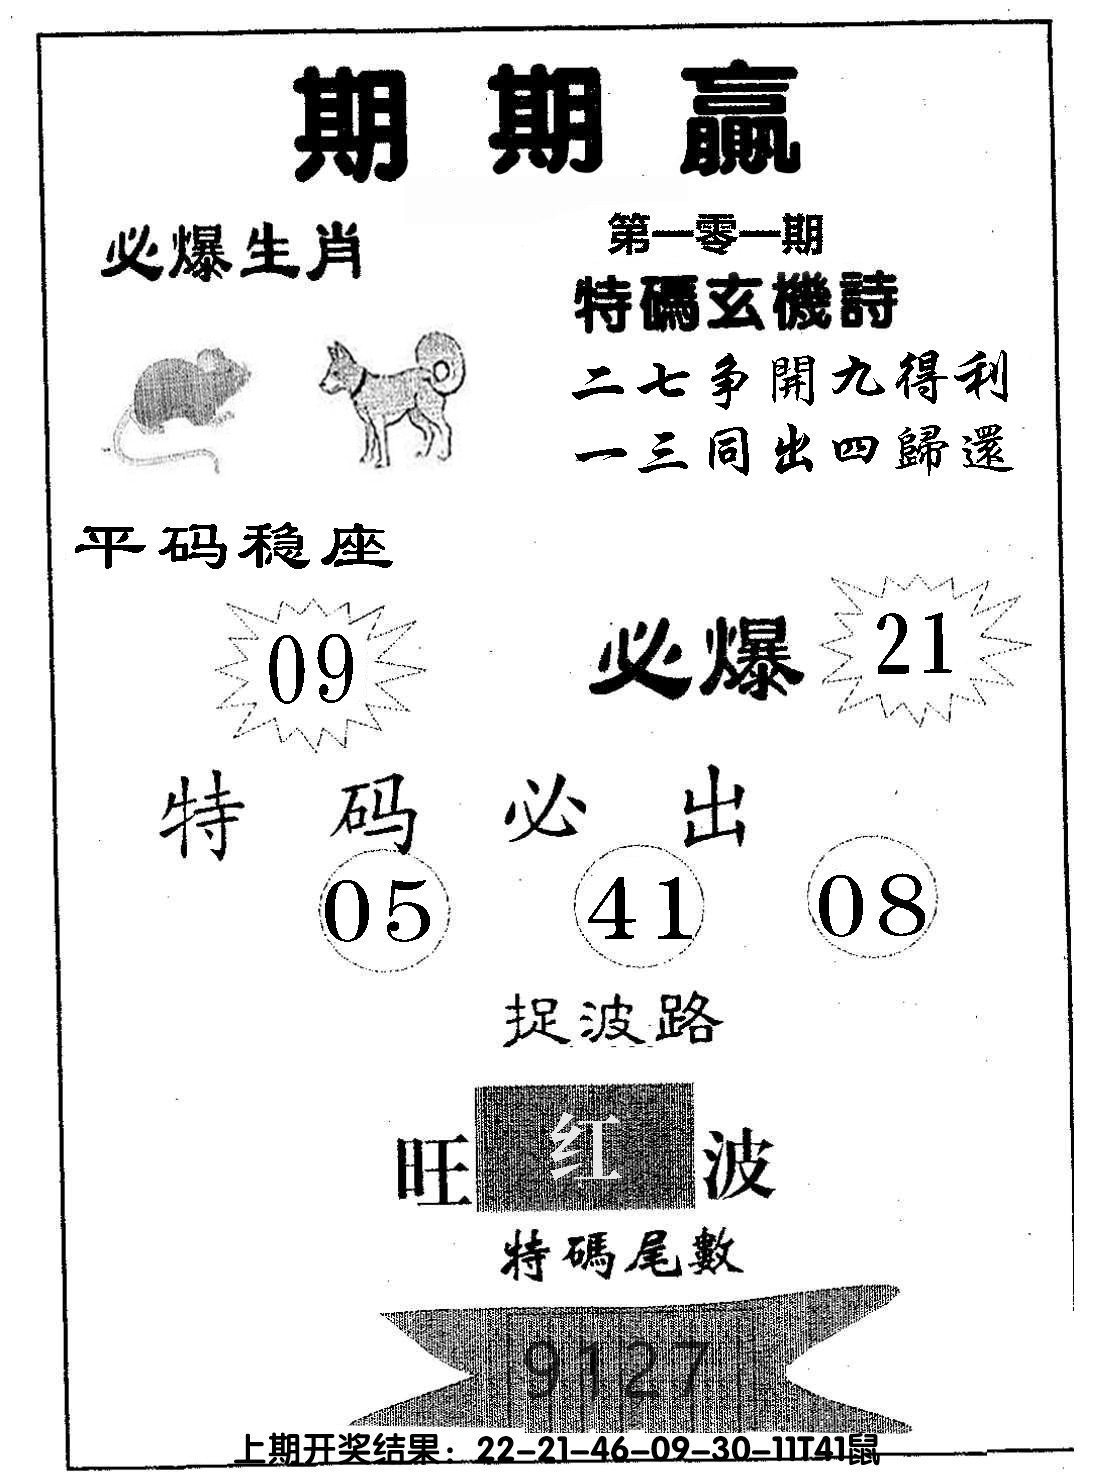 期期贏
必爆生肖
第一零一期
特碼玄機詩
二七争開九得利
一三同出四歸還
平码稳座
09
必爆 21
特码必出
05 41 08
捉波路
旺红波
特碼尾數
9127
上期开奖结果：22-21-46-09-30-11T41鼠